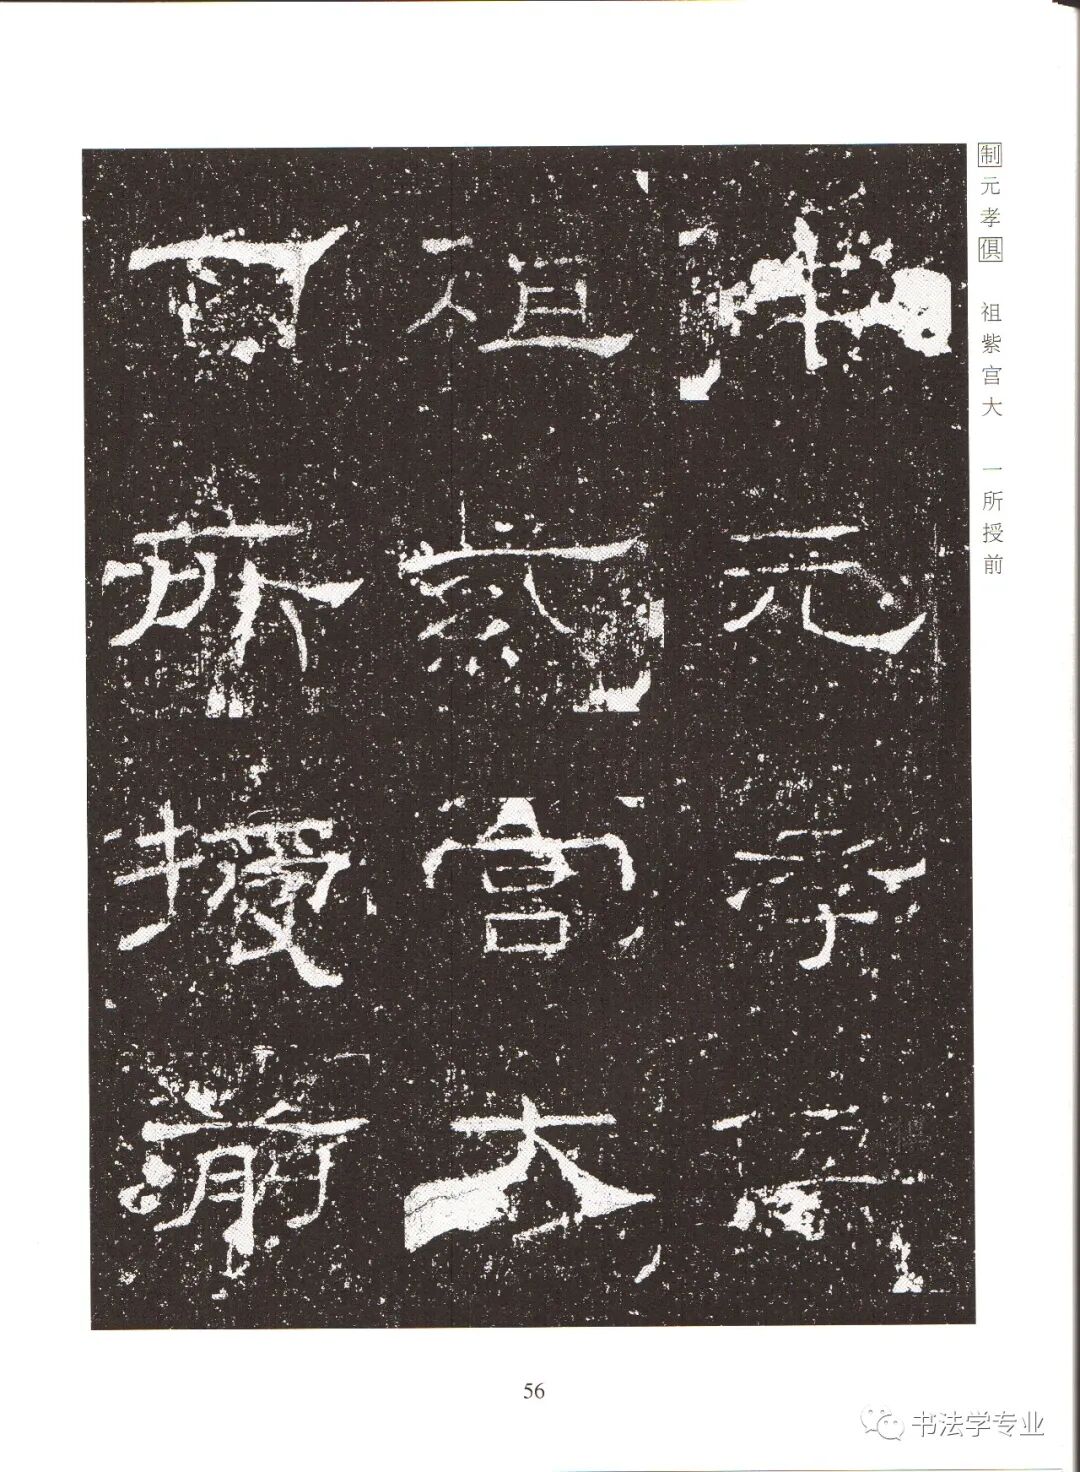 制元孝俱 祖紫宫大 一所授前
元孝
祖紫宮大
所授前
56
书法学专业